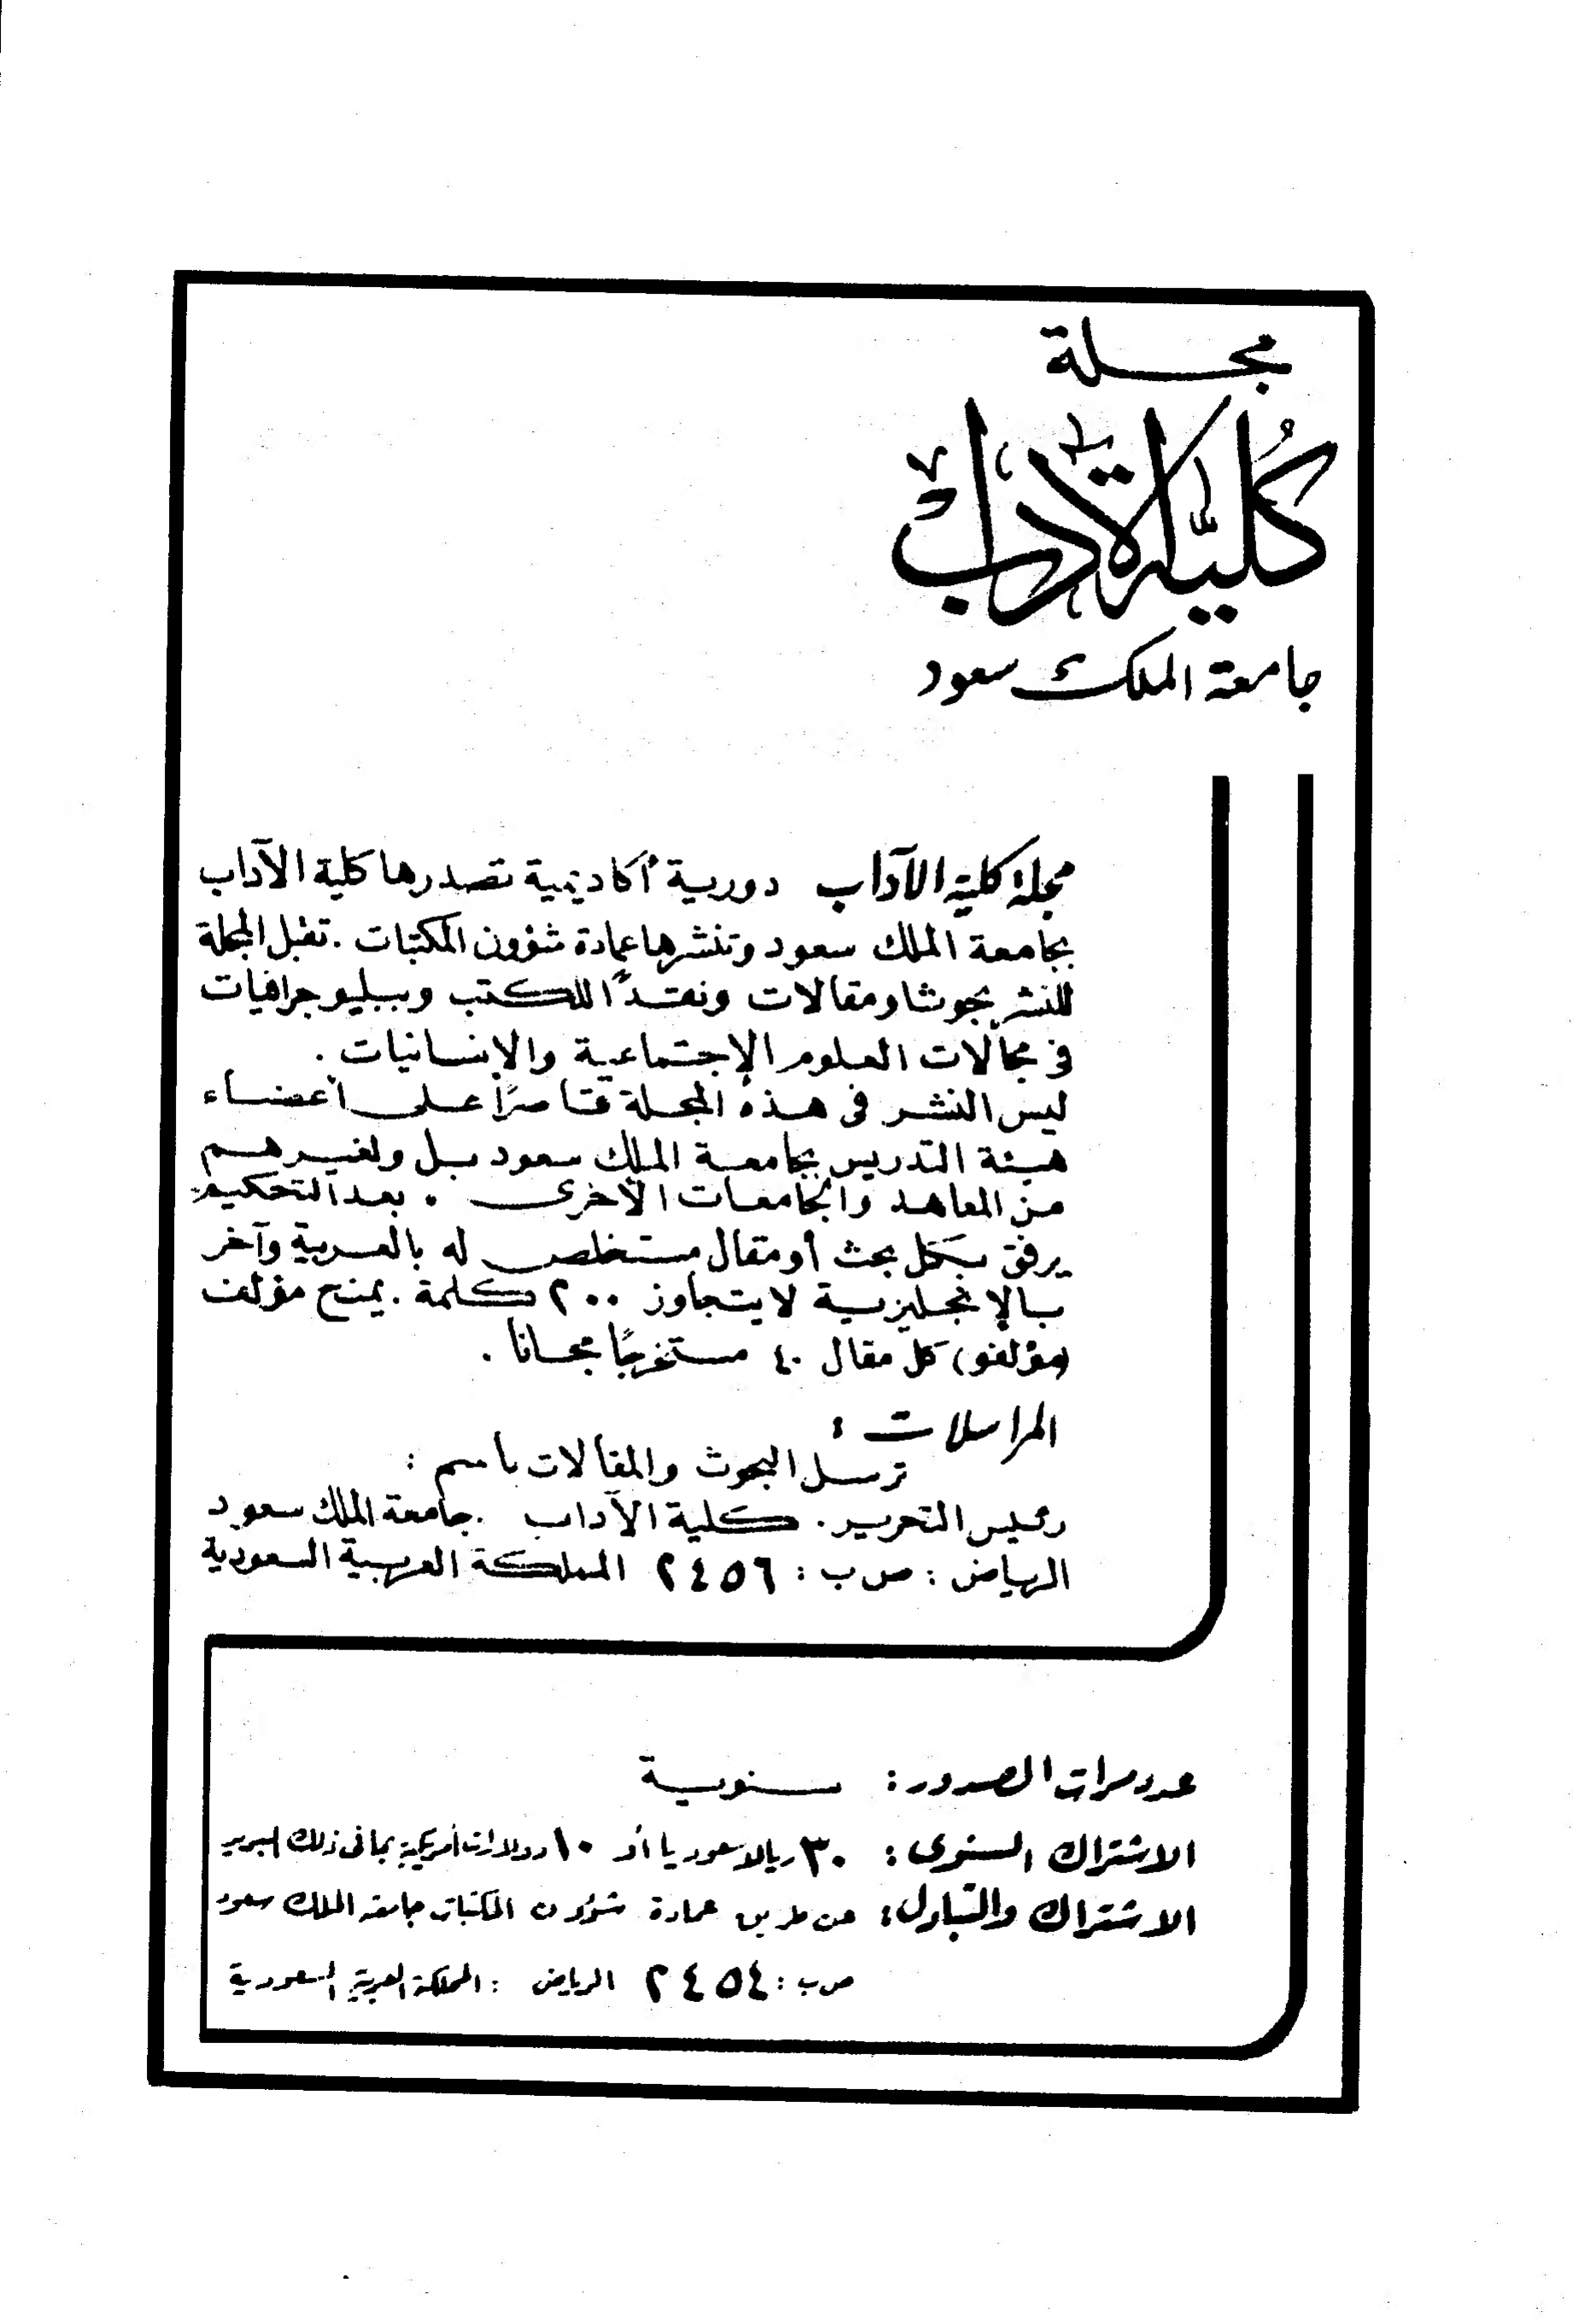 مجلة
كُليّة الآداب
جامعة الملك سعود
مجلة كلية الآداب دورية أكاديمية تصدرها كلية الآداب
بجامعة الملك سعود وتنشرها عمادة شؤون المكتبات . تقبل المجلة
للنشر بحوثا ومقالات ونقدًا للكتب وببليوجرافيات
في مجالات العلوم الإجتماعية والإنسانيات .
ليس النشر في هذه المجلة قاصرًا على أعضاء
هيئة التدريس بجامعة الملك سعود بل ولغيرهم
من المعاهد والجامعات الأخرى . بعد التحكيم
يرفق بكل بحث أو مقال مستخلص له بالعربية وآخر
بالإنجليزية لا يتجاوز ٢٠٠ كلمة . يمنح مؤلف
(مؤلفو) كل مقال ٤٠ مستخرجًا مجانا .
المراسلات :
ترسل البحوث والمقالات باسم :
رئيس التحرير . كلية الآداب . جامعة الملك سعود
الرياض : ص ب : ٢٤٥٦ المملكة العربية السعودية
عدد مرات الصدور : سنوية
الاشتراك السنوى : ٣٠ ريالا سعوديا أو ١٠ دولارات أمريكية بما في ذلك البريد
الاشتراك والتبادل : عن طريق عمادة شؤون المكتبات جامعة الملك سعود
ص ب : ٢٤٥٤ الرياض : المملكة العربية السعودية